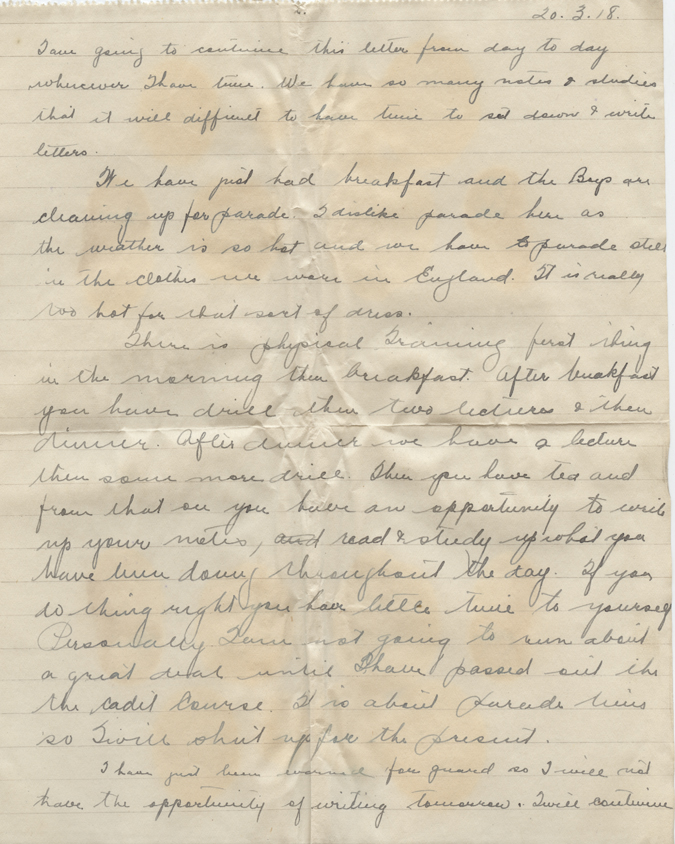 2.
20.3.18.
I am going to continue this letter from day to day
whenever I have time. We have so many notes & studies
that it will difficult to have time to set down & write
letters.
We have just had breakfast and the Boys are
cleaning up for parade. I dislike parade here as
the weather is so hot and we have to parade still
in the clothes we wore in England. It is really
too hot for that sort of dress.
There is physical Training first thing
in the morning then breakfast. After breakfast
you have drill then two lectures & then
dinner. After dinner we have a lecture
then some more drill. Then you have tea and
from that on you have an opportunity to write
up your notes, and read & study up what you
have been doing throughout the day. If you
do thing right you have little time to yourself
Personally I am not going to run about
a great deal until I have passed out the
the cadit Course. It is about parade time
so I will shut up for the present.
I have just been warned for guard so I will not
have the opportunity of writing tomorrow. I will continue